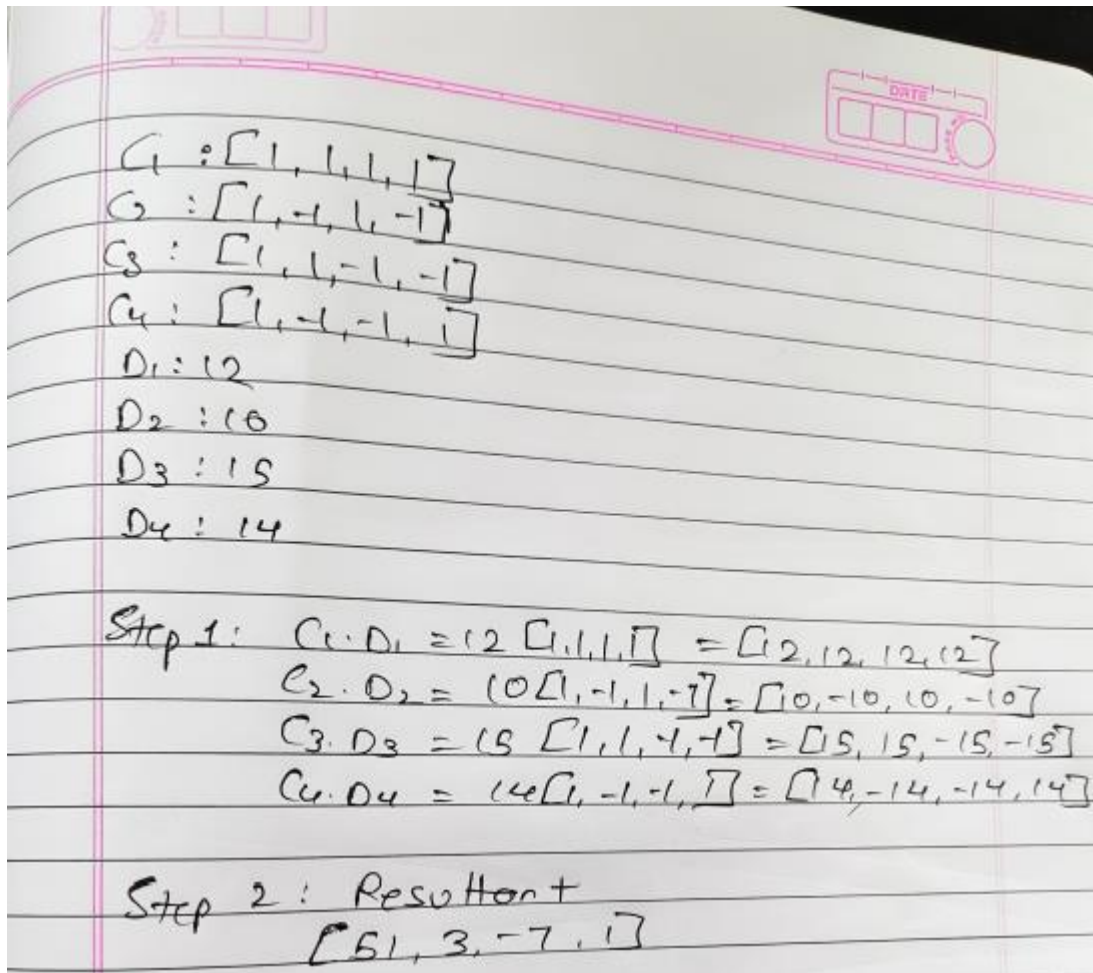 DATE
C1 : [1, 1, 1, 1]
C2 : [1, -1, 1, -1]
C3 : [1, 1, -1, -1]
C4 : [1, -1, -1, 1]
D1 : 12
D2 : 10
D3 : 15
D4 : 14
Step 1: C1.D1 = 12 [1,1,1,1] = [12, 12, 12, 12]
C2.D2 = 10[1,-1,1,-1] = [10, -10, 10, -10]
C3.D3 = 15 [1,1,-1,-1] = [15, 15, -15, -15]
C4.D4 = 14[1,-1,-1,1] = [14, -14, -14, 14]
Step 2 : Resultant
[51, 3, -7, 1]